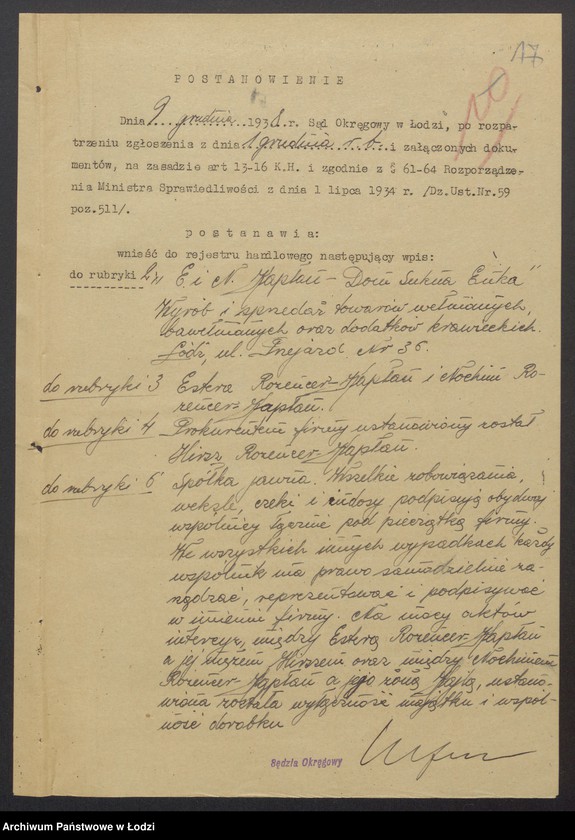 17
10
POSTANOWIENIE
Dnia 9 grudnia 1938 r. Sąd Okręgowy w Łodzi, po rozpa-
trzeniu zgłoszenia z dnia 1 grudnia r. b. i załączonych doku-
mentów, na zasadzie art 13-16 K.H. i zgodnie z § 61-64 Rozporządze-
nia Ministra Sprawiedliwości z dnia 1 lipca 1934 r /Dz.Ust.Nr.59
poz.511/.
postanawia:
wnieść do rejestru handlowego następujący wpis:
do rubryki 2 „E i N. Kapłan – Dom Sukna Enka"
Wyrób i sprzedaż towarów wełnianych,
bawełnianych oraz dodatków krawieckich.
Łódź, ul. Przejazd Nr 36.
do rubryki 3 Estera Rozencer-Kapłan i Nochim Ro-
zencer-Kapłan.
do rubryki 4 Prokurentem firmy ustanowiony został
Hirsz Rozencer-Kapłan.
do rubryki 6 Spółka jawna. Wszelkie zobowiązania,
weksle, czeki i indosy podpisują obydwaj
wspólnicy łącznie pod pieczątką firmy.
We wszystkich innych wypadkach każdy
wspólnik ma prawo samodzielnie za-
rządzać, reprezentować i podpisywać
w imieniu firmy. Na mocy aktów
intercyz, między Esterą Rozencer-Kapłan
a jej mężem Hirszem oraz między Nochimem
Rozencer-Kapłan a jego żoną, ustano-
wiona została wyłączność majątku i wspól-
ność dorobku
Sędzia Okręgowy
Archiwum Państwowe w Łodzi